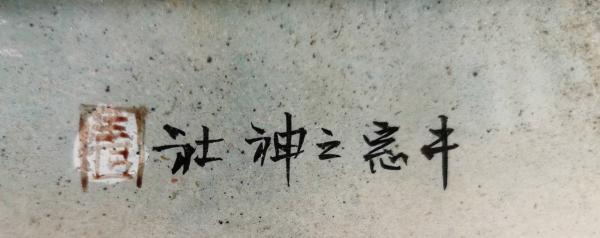 牛窓之神社